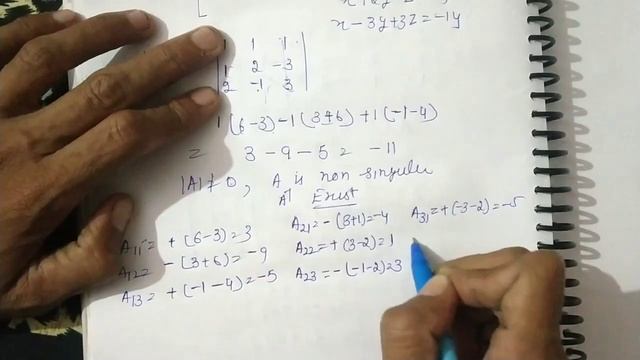 x-3y+3z=-14
1 1 1
1 2 -3
2 -1 3
1(6-3)-1(3+6)+1(-1-4)
= 3-9-5= -11
|A|≠0, A is non singular
A⁻¹ Exist
A11= +(6-3)=3
A12= -(3+6)=-9
A13= +(-1-4)=-5
A21= -(3+1)=-4
A22= +(3-2)=1
A23= -(-1-2)=3
A31=+(-3-2)=-5